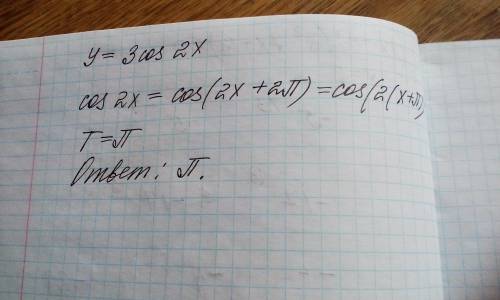 y = 3cos 2x
cos 2x = cos(2x + 2π) = cos(2(x+π)
T=π
Ответ: π.